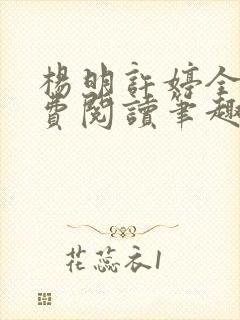 楊明許婷全
費閱讀筆趣
花蕊衣1